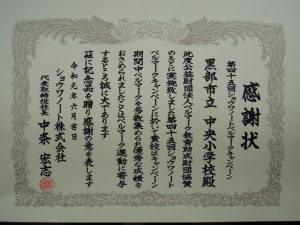 感謝状
第四十五回ショウワノートベルマークキャンペーン
黒部市立 中央小学校殿
此度公益財団法人ベルマーク教育助成財団協賛
のもとに実施致しました第四十五回ショウワノート
ベルマークキャンペーンに於い貴校はキャンペーン
期間中ベルマークを多数集められ優秀な成績を
おさめられましたことはベルマーク運動に寄与
するところ誠に大であります
茲に記念品を贈り感謝の意を表します
令和元年六月吉日
ショウワノート株式会社
代表取締役社長 中条 宏志